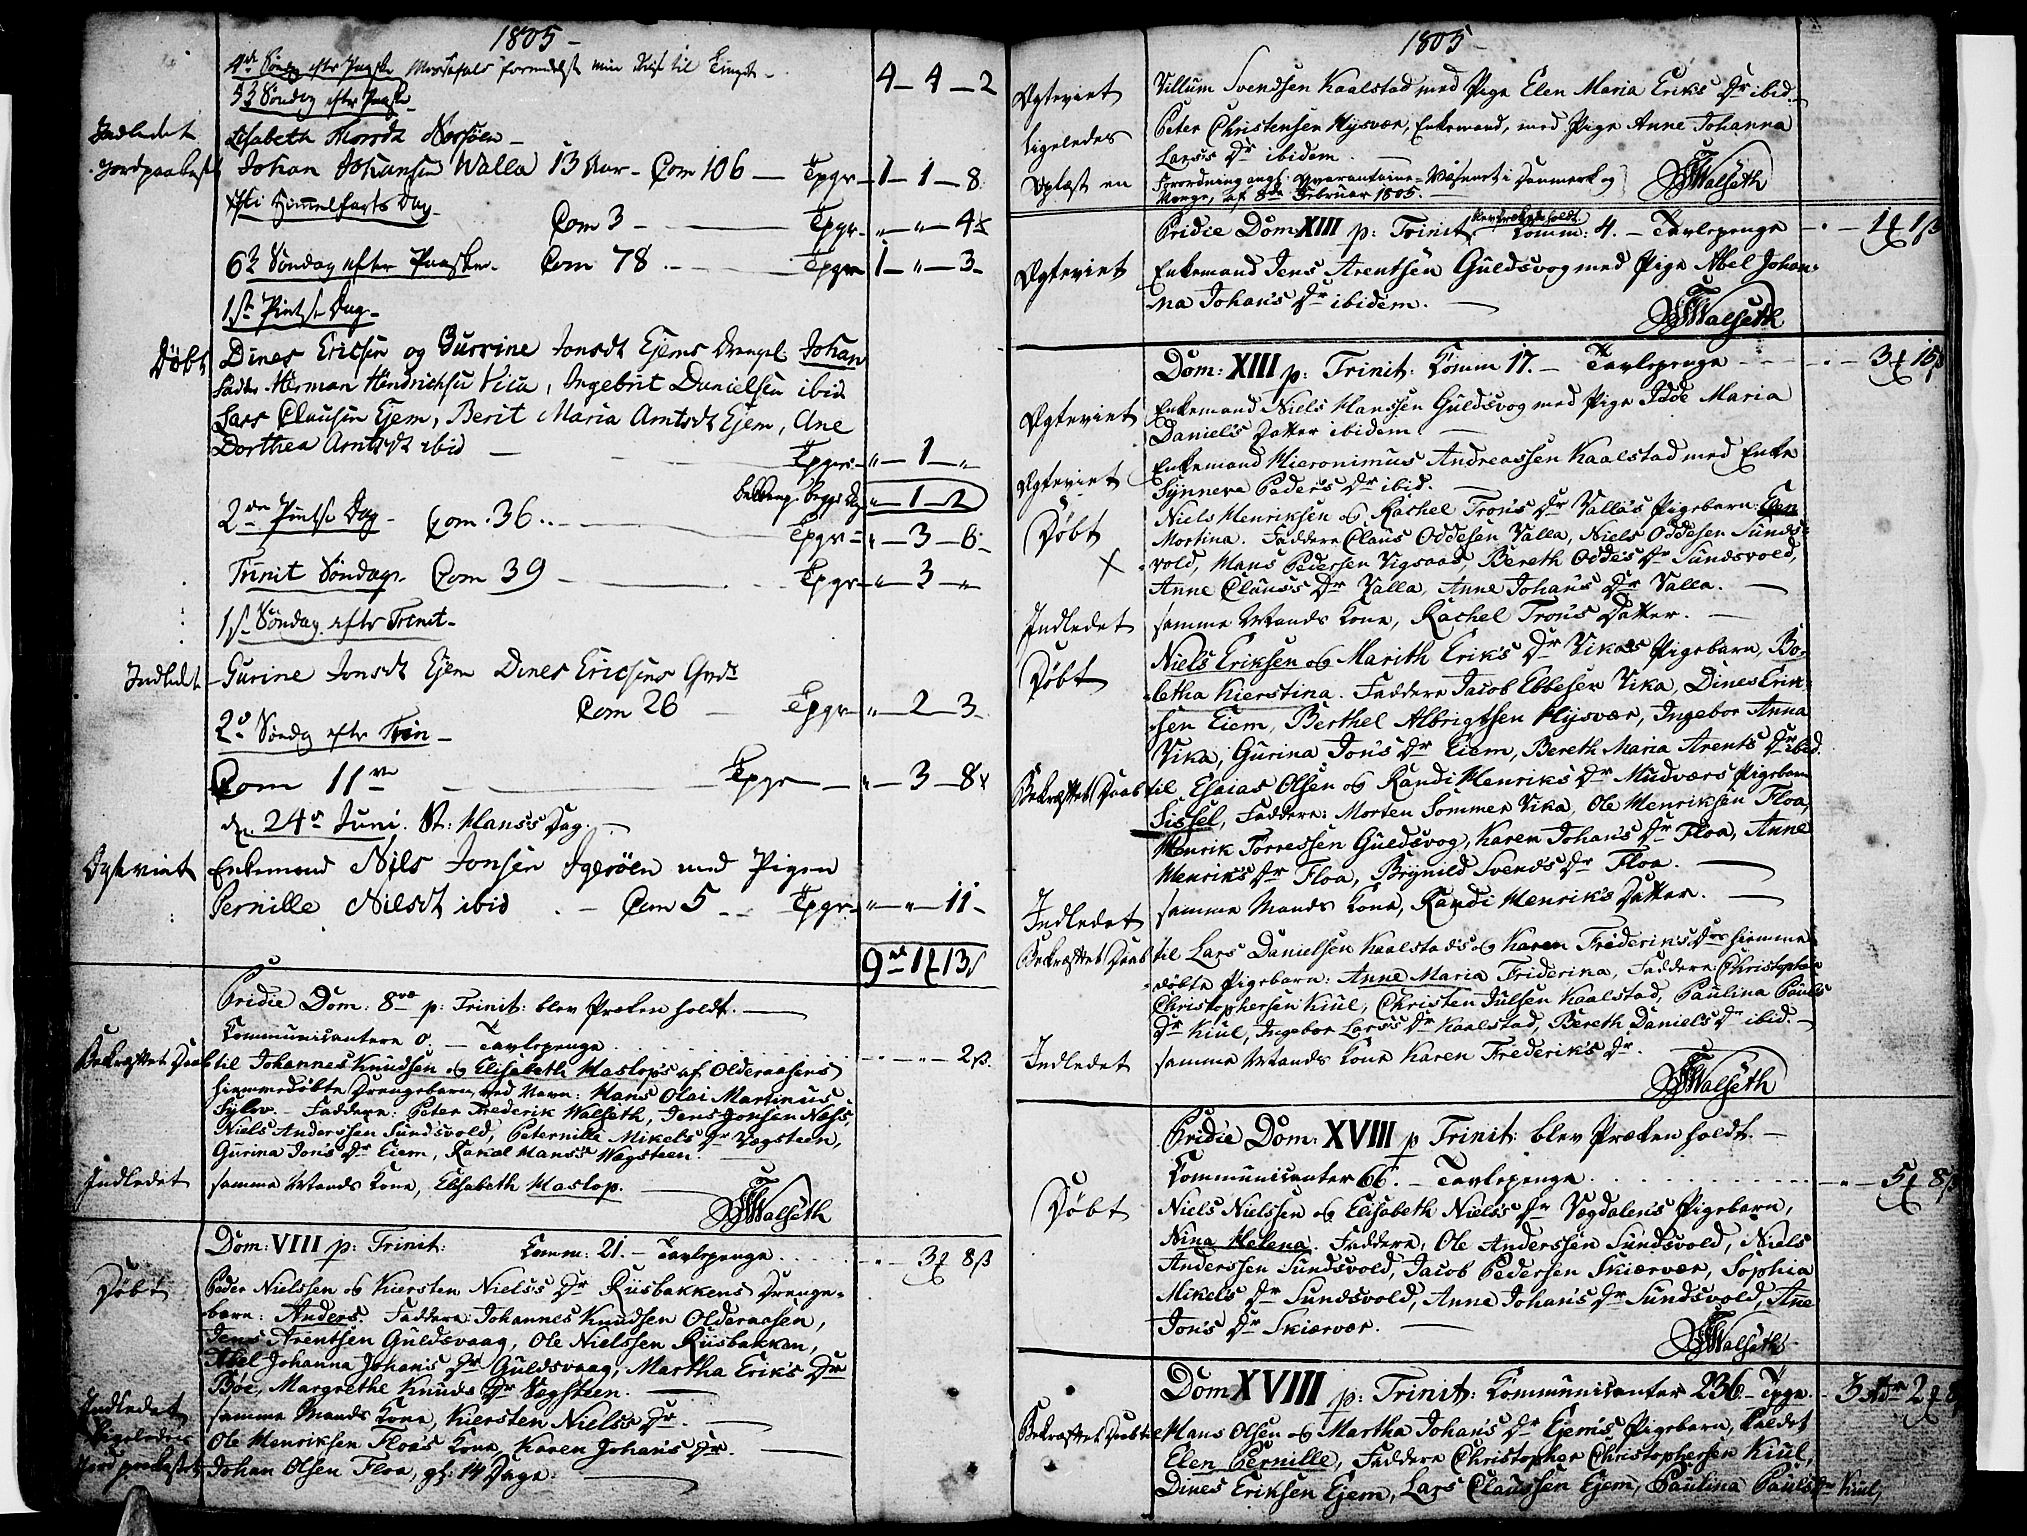 1805 –
4de Søndag efter Paaske Messefald formedelst min Reise til Tinget –
4 – 4 – 2
5te Søndag efter Paaske
Indledet
Elisabeth Norsøen –
Jordpaakast
Johan Johansen Walla 13 Aar – Com 106 – Tpgr – 1 – 1 – 8
Christi Himmelfarts Dag –
Com 3 – Tpgr – " – " – 4
6te Søndag efter Paaske – Com 78 – Tpgr – 1 – " – 3 –
1ste Pintse Dag –
Døbt
Dines Ericsen og Gurrine Jonsdt Ejems Drengeb. Johan
Fadd. Herman Hendrichsen Vica, Ingebrit Danielsen ibid
Lars Clausen Ejem, Berit Maria Arntsdt Ejem, Ane
Dorthea Arntsdt ibid –
Tpgr – " – 1 – "
begge Dag " – 1 – 2
2den Pintse Dag – Com. 36 .. – Tpgr – " – 3 – 6 –
Trinit Søndag – Com 39 – Tpgr – " – 3 – "
1ste Søndag efter Trinit –
Indledet
Gurine Jonsdt Ejem Dines Ericsens
Com 26 – Tpgr – " – 2 – 3 –
2den Søndag efter Trin –
Com 11 – Tpgr – " – 3 – 8
den 24de Juni. St: Hans's Dag. –
Ægteviet
Enkemand Nils Jonsen Igerøen med Pigen
Pernille Nilsdt ibid – Com 5 – Tpgr – " – " – 11 –
9 rd 1 ƒ 13 s
Pridie Dom: 8va p: Trinit: blev Præken holdt. –
Communicantere 0. – Tavlepenge . . . – 2 ß
Bekræftet Daab
til Johannes Knudsen og Elisabeth Haslops af Olderaasens
hiemmedøbte Drengebarn, ved Navn: Hans Olai Martinus
Sylov. – Faddere: Peter Frederik Walseth, Jens Jonsen Næss,
Niels Anderssen Sundsvold, Peternille Mikels Dr Vogsteen,
Gurina Jons Dr Eiem, Rakel Hans's Wagsteen. –
Indledet
samme Mands Kone, Elisabeth Haslop. –
Walseth
Dom: VIII p: Trinit: Comm: 21. – Tavlepenge . . . – 3 ƒ 8 ß
Døbt
Peder Nielssen og Kiersten Niels's Dr Riisbakkens Drenge-
barn: Anders. Faddere: Johannes Knudsen Olderaasen,
Jens Arentsen Guldsvaag, Ole Nielssen Riisbakken,
Abel Johanna Johans Dr Guldsvaag, Martha Eriks Dr
Bøe, Margrethe Knuds Dr Vogsteen. –
Indledet
samme Mands Kone, Kiersten Niels's Dr. –
Ligeledes
Ole Henriksen Floa's Kone, Karen Johans Dr. –
Jord paakastet
Johan Olsen Floa, gl: 14 Dage. –
1805 –
Ægteviet
Villum Svendsen Kaalstad med Pige Elen Maria Eriks Dr ibid. –
ligeledes
Peter Christensen Hysvær, Enkemand, med Pige Anne Johanna
Lars's Dr ibidem. –
Oplæst en
Forordning ang: Qvarantaine-Væsenet i Danmark og
Norge, af 8de Februar 1805. –
Walseth
Pridie Dom XIII p: Trinit: blev Præken holdt. Comm: 4. – Tavlepenge – 1 ƒ 1 ß
Ægteviet
Enkemand Jens Arentsen Guldsvog med Pige Abel Johan-
na Johans Dr ibidem. –
Walseth
Dom: XIII p: Trinit: Comm 17. – Tavlepenge – 3 ƒ 15 ß
Ægteviet
Enkemand Niels Hanssen Guldsvog med Pige Idde Maria
Daniels Datter ibidem. –
Ægteviet
Enkemand Hieronimus Andreassen Kaalstad med Enke
Synneve Peders Dr ibid. –
Døbt
Niels Henriksen og Rachel Trons Dr Vallas Pigebarn: Elen
Martina. Faddere Claus Oddesen Valla, Niels Oddesen Sunds-
X
vold, Hans Pedersen Vigsaas, Bereth Oddes Dr Sundsvold,
Anne Claus's Dr Valla, Anne Johans Dr Valla. –
Indledet
samme Mands Kone, Rachel Trons Datter. –
Døbt
Niels Eriksen og Marith Eriks Dr Vikas Pigebarn, Bo-
letha Kierstina. Faddere Jacob Ebbesen Vika, Dines Erik-
sen Eiem, Berthel Albrigtsen Hysvær, Ingebor Anna
Vika, Gurina Jons Dr Eiem, Bereth Maria Arents Dr ibid.
Bekræftet Daab
til Esaias Olsen og Randi Henriks Dr Mudværs Pigebarn
Sissel, Faddere: Morten Sommer Vika, Ole Henriksen Floa,
Henrik Torressen Guldsvog, Karen Johans Dr Floa, Anne
Henriks Dr Floa, Brynild Svends Dr Floa. –
Indledet
samme Mands Kone, Randi Henriks Datter. –
Bekræftet Daab
til Lars Danielsen Kaalstads og Karen Frideriks Drs hiemme-
døbte Pigebarn: Anne Maria Friderika, Faddere: Christopher
Christophersen Kiul, Christen Julsen Kaalstad, Paulina Pauls
Dr Kiul, Ingebor Lars's Dr Kaalstad, Bereth Daniels Dr ibid. –
Indledet
samme Mands Kone Karen Frederik's Dr. –
Walseth
Pridie Dom: XVIII p Trinit: blev Præken holdt. –
Communicanter 66. – Tavlepenge . . . – 5 ƒ 8 ß
Døbt
Niels Nielssen og Elisabeth Niels's Dr Vogdalens Pigebarn,
Nina Helena. Faddere, Ole Anderssen Sundsvold, Niels
Anderssen Sundsvold, Jacob Pedersen Skiærvær, Sophia
Mikels Dr Sundsvold, Anne Johans Dr Sundsvold, Ane
Jons Dr Skiærvær. –
Walseth
Dom XVIII p: Trinit: Communicanter 236. – Tpge. – 3 rdr 2 ƒ 8
Bekræftet Daab til
Hans Olsen og Martha Johans Dr Ejems Pigebarn, kaldet
Elen Pernille, Faddere Christopher Christophersen Kiul,
Dines Eriksen Ejem, Lars Claussen Ejem, Paulina Pauls Dr Kiul,